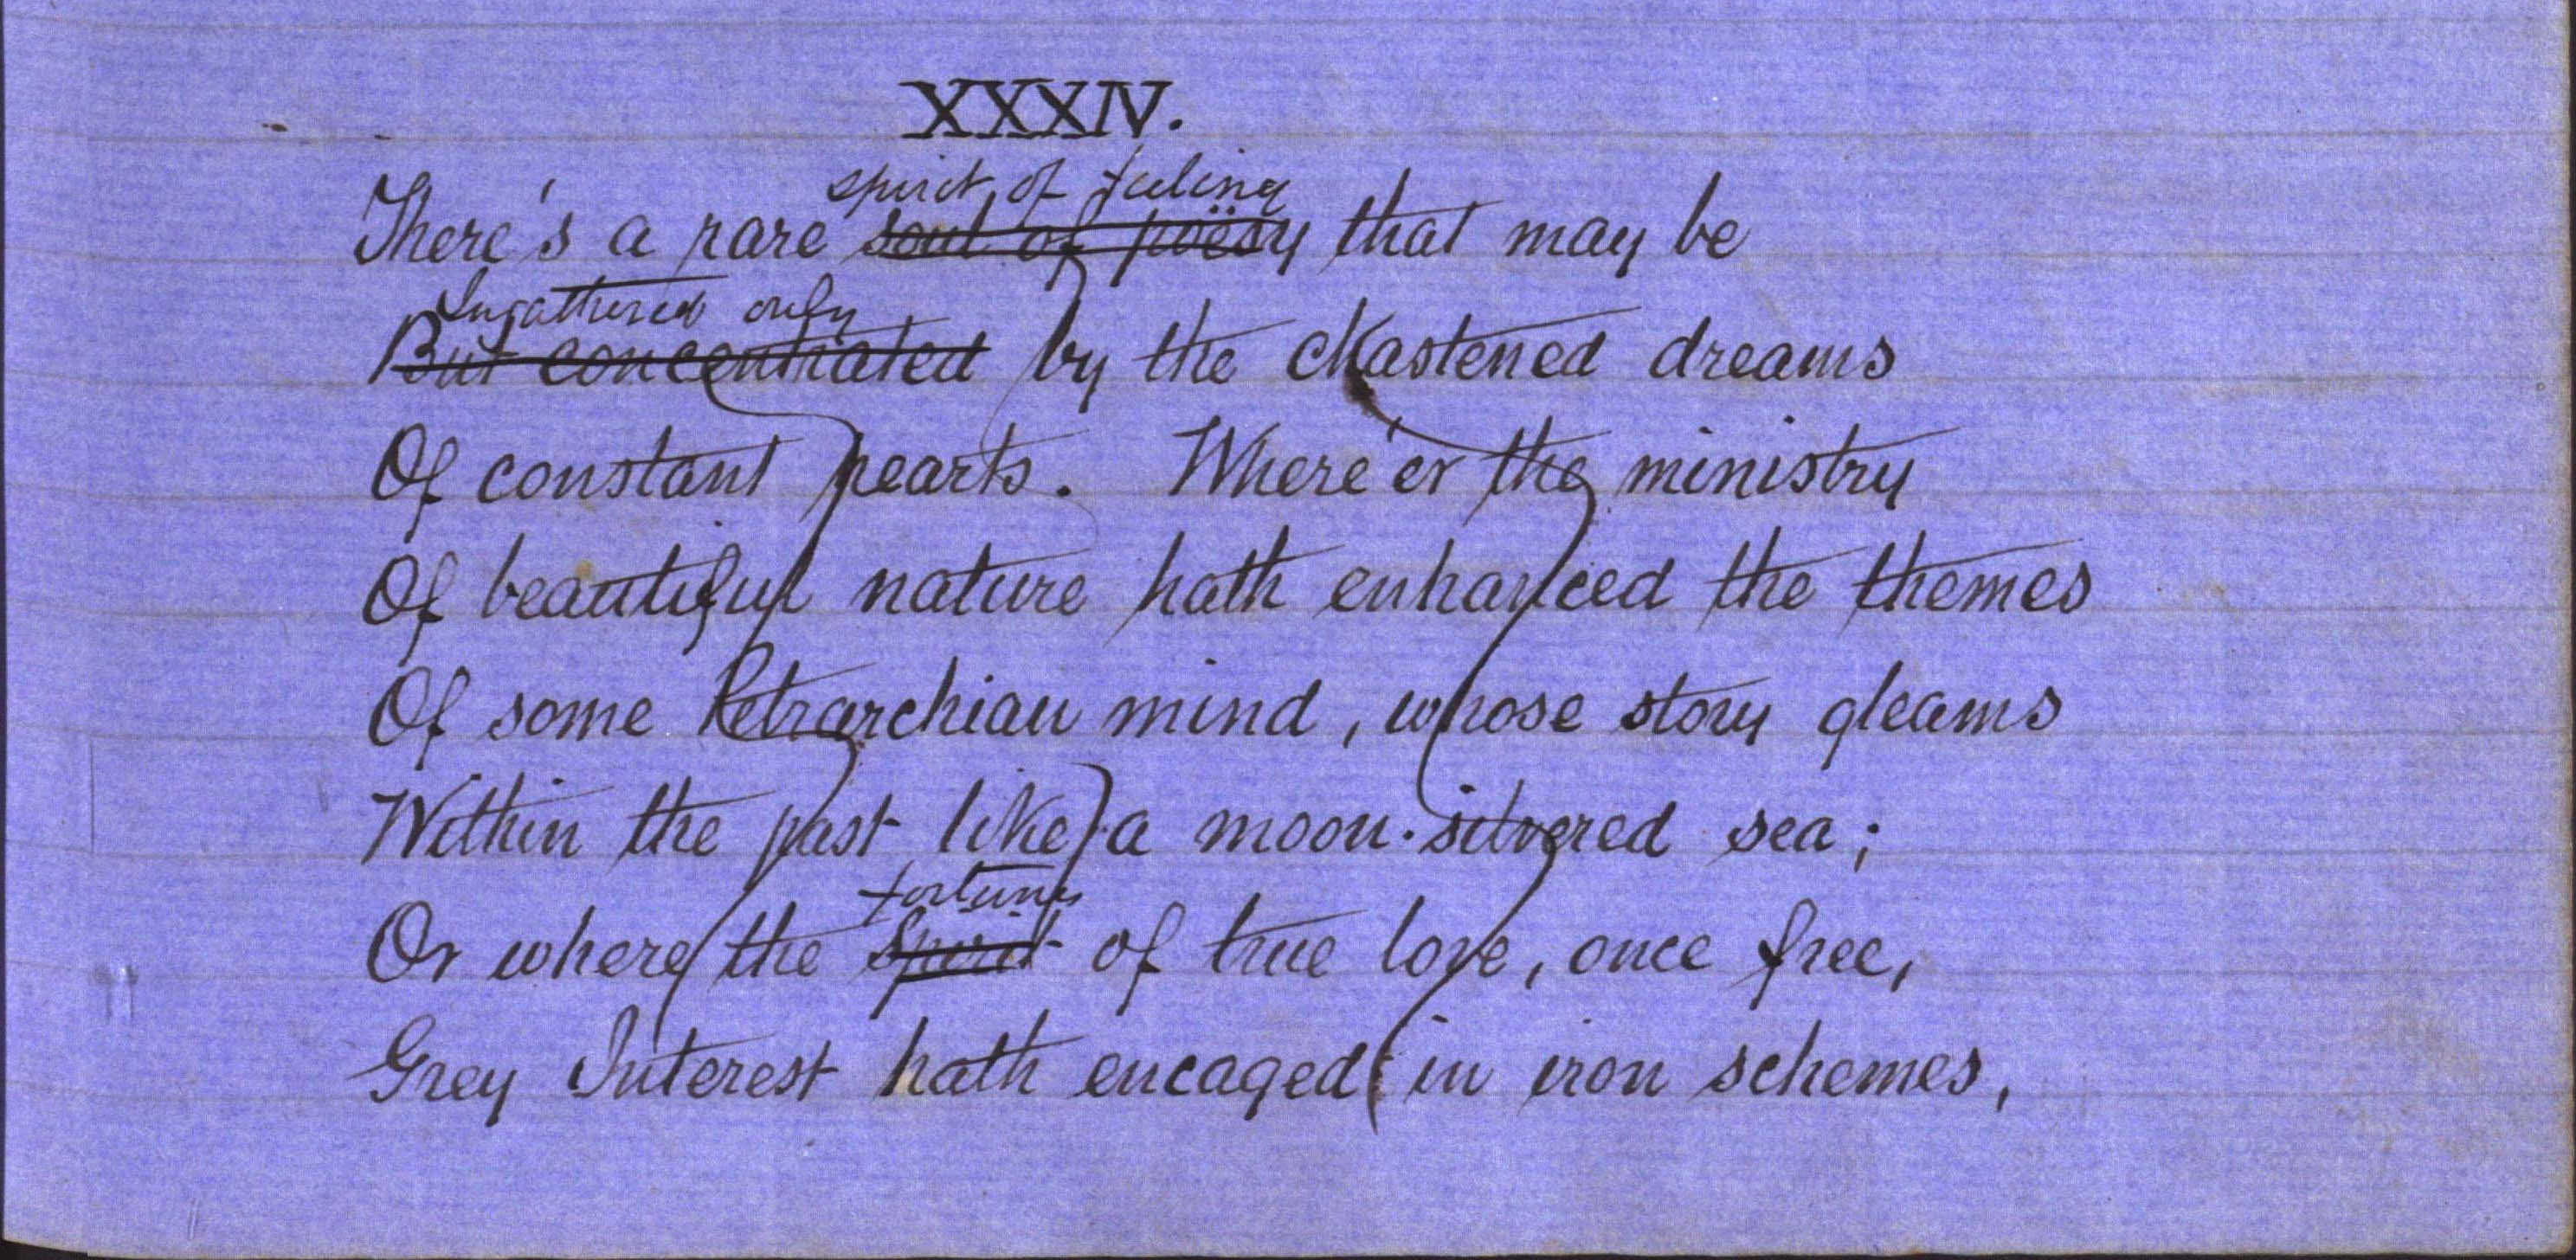 XXXIV.
spirit of feeling
There's a rare soul of poësy that may be
Ingathered only
But concentrated by the chastened dreams
Of constant hearts. Where'er the ministry
Of beautiful nature hath enhanced the themes
Of some Petrarchian mind, whose story gleams
Within the past like a moon-silvered sea;
fortune
Or where the Spirit of true love, once free,
Grey Interest hath encaged in iron schemes,